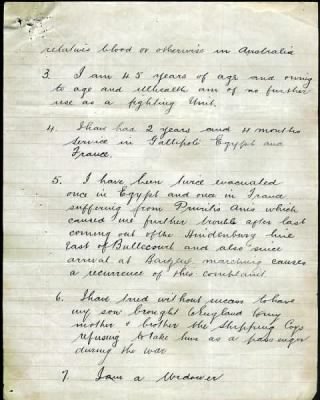 relative blood or otherwise in Australia
3. I am 45 years of age and owing
to age and illhealth am of no further
use as a fighting Unit.
4. I have had 2 years and 4 months
service in Gallipoli Egypt and
France.
5. I have been twice evacuated
once in Egypt and once in France
suffering from Pruritis Anis which
caused me further trouble after last
coming out of the Hindenburg line
East of Bullecourt and also since
arrival at marching causes
a recurrence of this complaint
6. I have tried without success to have
my son brought to England to my
mother & brother the shipping Coys
refusing to take him as a passenger
during the war
7. I am a Widower